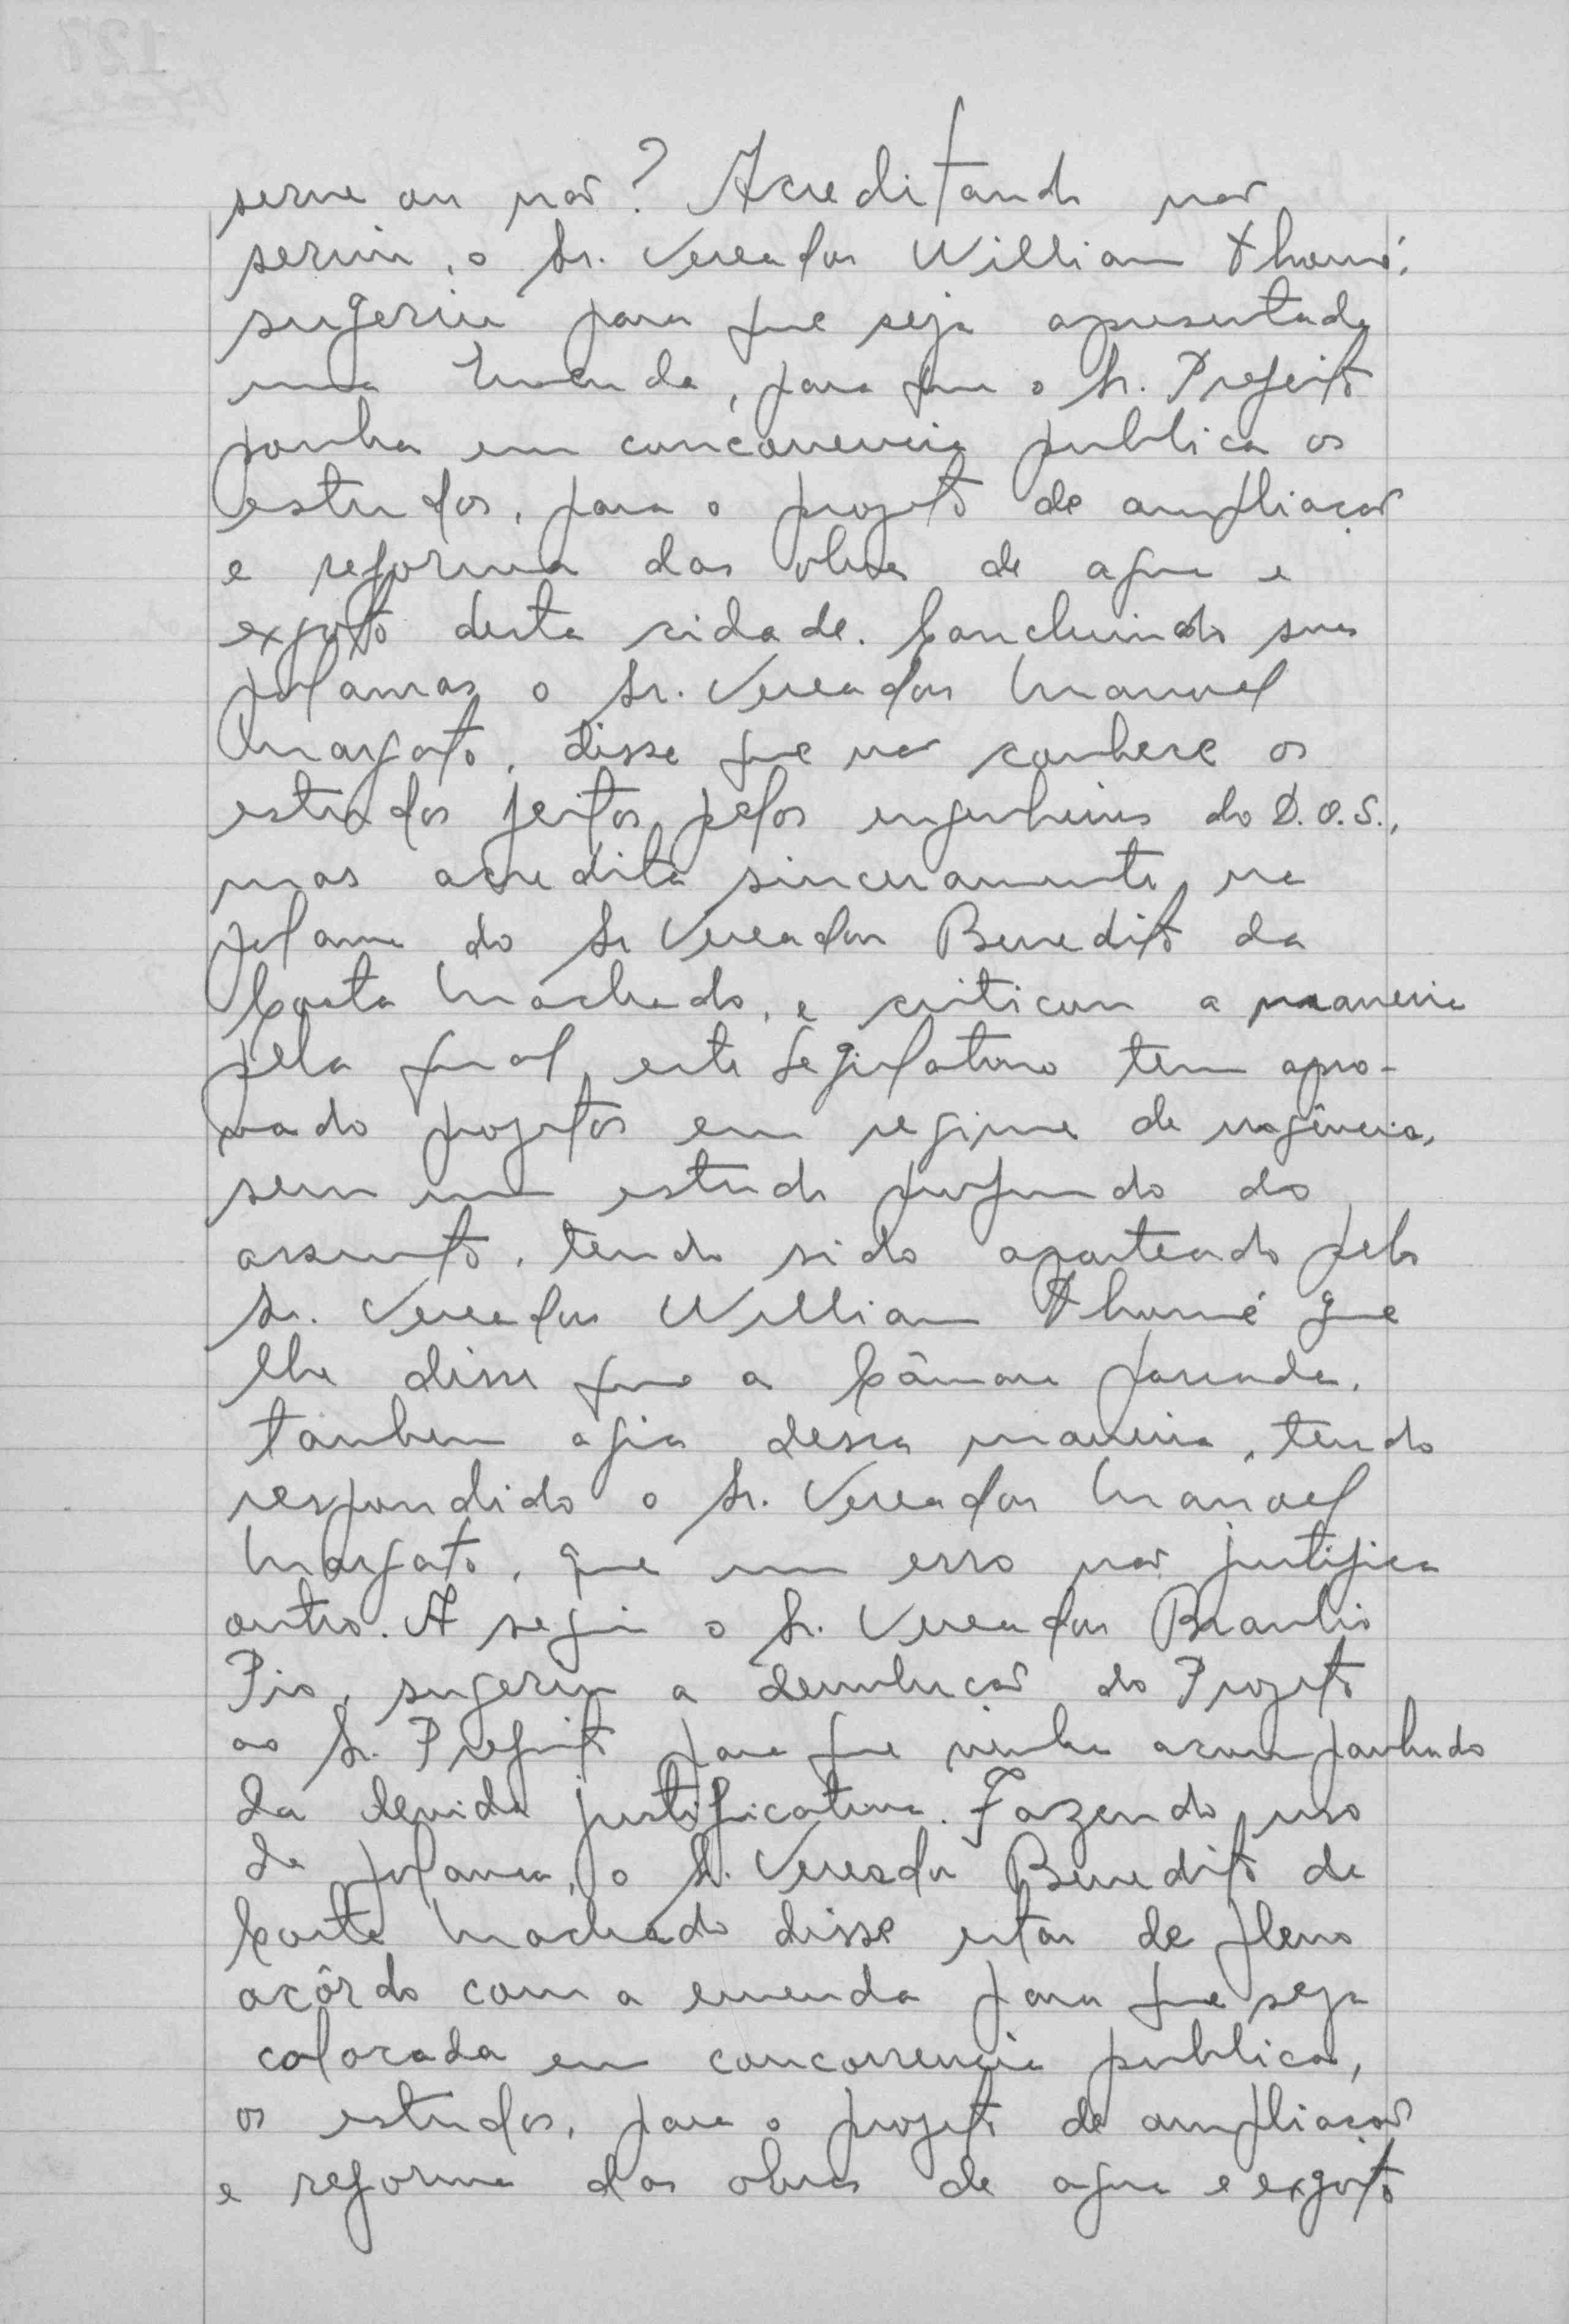 serve ou não? Acreditando não
servir, o Sr. Vereador William Thomé,
sugeriu para que seja apresentada
uma Emenda, para que o Sr. Prefeito
ponha em concorrencia publica os
estudos, para o projeto de ampliação
e reforma das obras de agua e
exgoto desta cidade. Concluindo suas
palavras o Sr. Vereador Manoel
Margato, disse que não conhece os
estudos feitos pelos engenheiros do D.O.S.,
mas acredita sinceramente na
palavra do Sr Vereador Benedito da
Costa Machado, e criticou a maneira
pela qual este Legislativo tem apro-
vado projetos em regime de urgência,
sem um estudo profundo do
assunto, tendo sido aparteado pelo
Sr. Vereador William Thomé que
lhe disse que a Câmara passada,
tambem agia dessa maneira, tendo
respondido o Sr. Vereador Manoel
Margato, que um erro não justifica
outro. A seguir o Sr. Vereador Braulio
Pio, sugeriu a devolução do Projeto
ao Sr. Prefeito para que venha acompanhado
da devida justificativa. Fazendo uso
da palavra, o Sr. Vereador Benedito da
Costa Machado disse estar de pleno
acôrdo com a emenda para que seja
colocada em concorrencia publica,
os estudos, para o projeto de ampliação
e reforma das obras de agua e exgoto